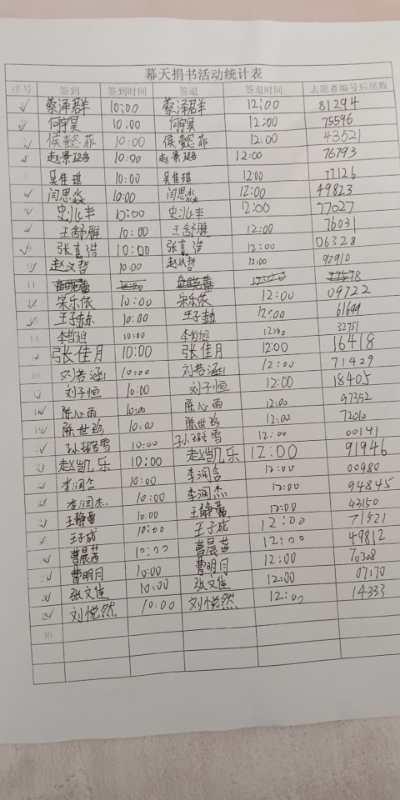 幕天捐书活动统计表
序号 签到 签到时间 签退 签退时间 志愿者编号后几数
蔡泽群 10:00 蔡泽群 12:00 81294
何宇昊 10:00 何宇昊 12:00 75596
侯懿菲 10:00 侯懿菲 12:00 43521
10:00 12:00 76793
吴佳琪 吴佳琪 12:00
闫思淼 10:00 闫思淼 12:00 49823
史兆丰 10:00 史兆丰 77027
王舒雅 10:00 王舒雅 12:00 76031
张言浩 10:00 张言浩 12:00 06328
赵文哲 10:00 赵文哲 12:00
11
宋乐依 10:00 宋乐依 12:00 09722
王子赫 10:00 王子赫 12:00
10:00 12:00
张佳月 10:00 张佳月 12:00 16418
刘若涵 10:00 刘若涵 12:00 71429
刘子恒 10:00 刘子恒 12:00 18405
陈心雨 10:00 陈心雨 12:00 97352
陈世玢 10:00 陈世玢 12:00
10:00 12:00 00141
赵凯乐 10:00 赵凯乐 12:00 91946
李润含 10:00 李润含 12:00 00980
李润杰 10:00 李润杰 12:00 94845
王静萱 10:00 王静萱 12:00 43150
王子成 10:00 王子成 12:00 71521
曹晨茜 10:00 曹晨茜 12:00 49812
曹明月 10:00 曹明月 12:00
张文佳 10:00 张文佳 12:00 07170
刘悦然 10:00 刘悦然 12:00 14333